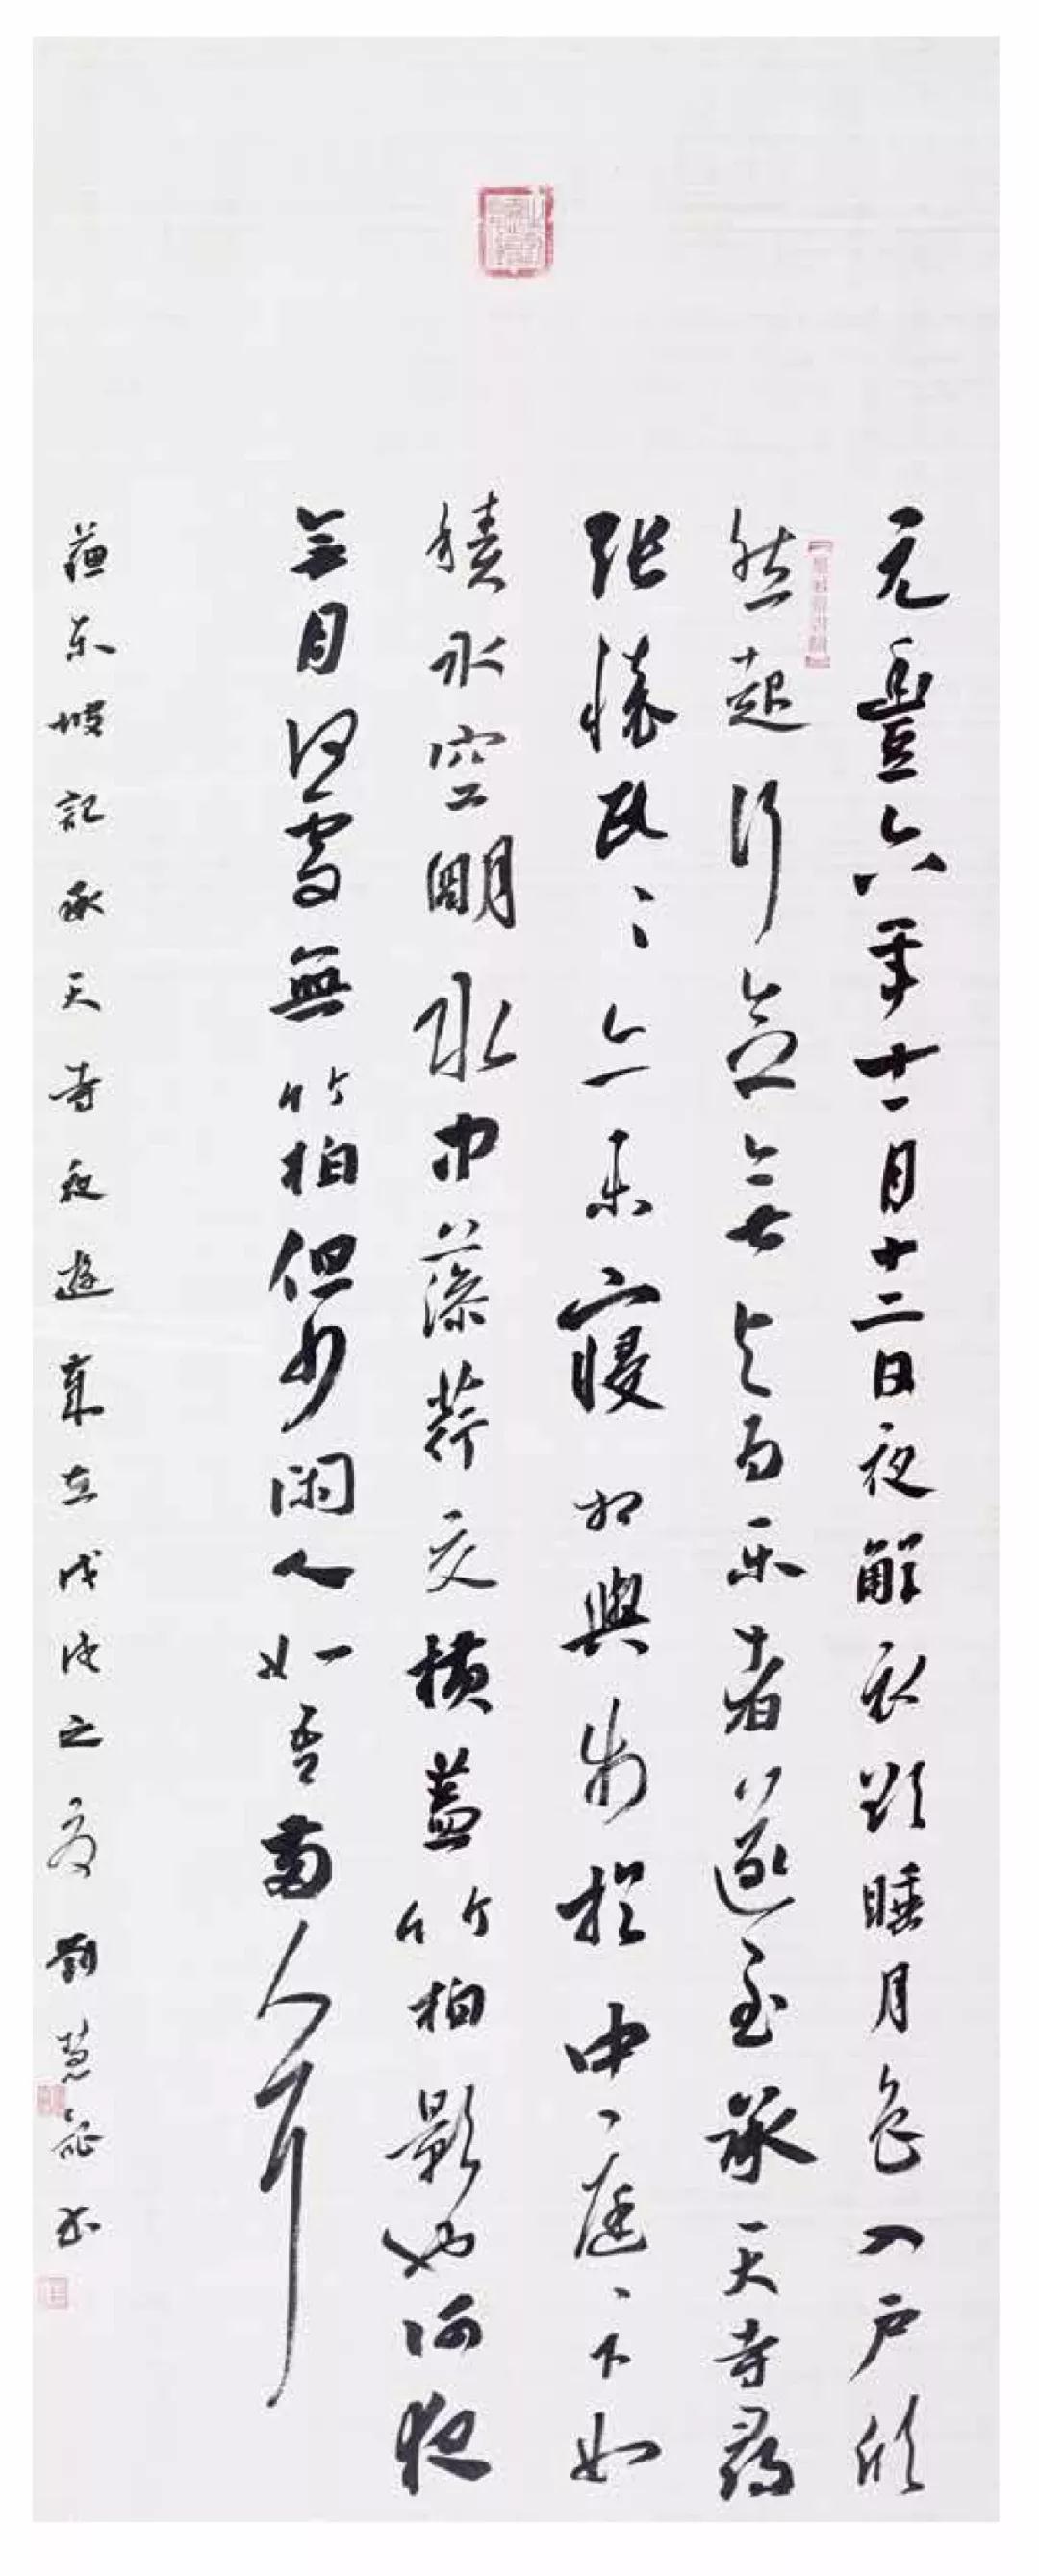 元豐六年十一月十二日夜解衣欲睡月色入户欣
然起行念无与为乐者遂至承天寺尋
张懷民〻亦未寝相與步於中庭下如
積水空明水中藻荇交横蓋竹柏影也何夜
無月何處無竹柏但少閑人如吾兩人耳
蘇东坡記承天寺夜遊歲在戊戌之夏劉慧书